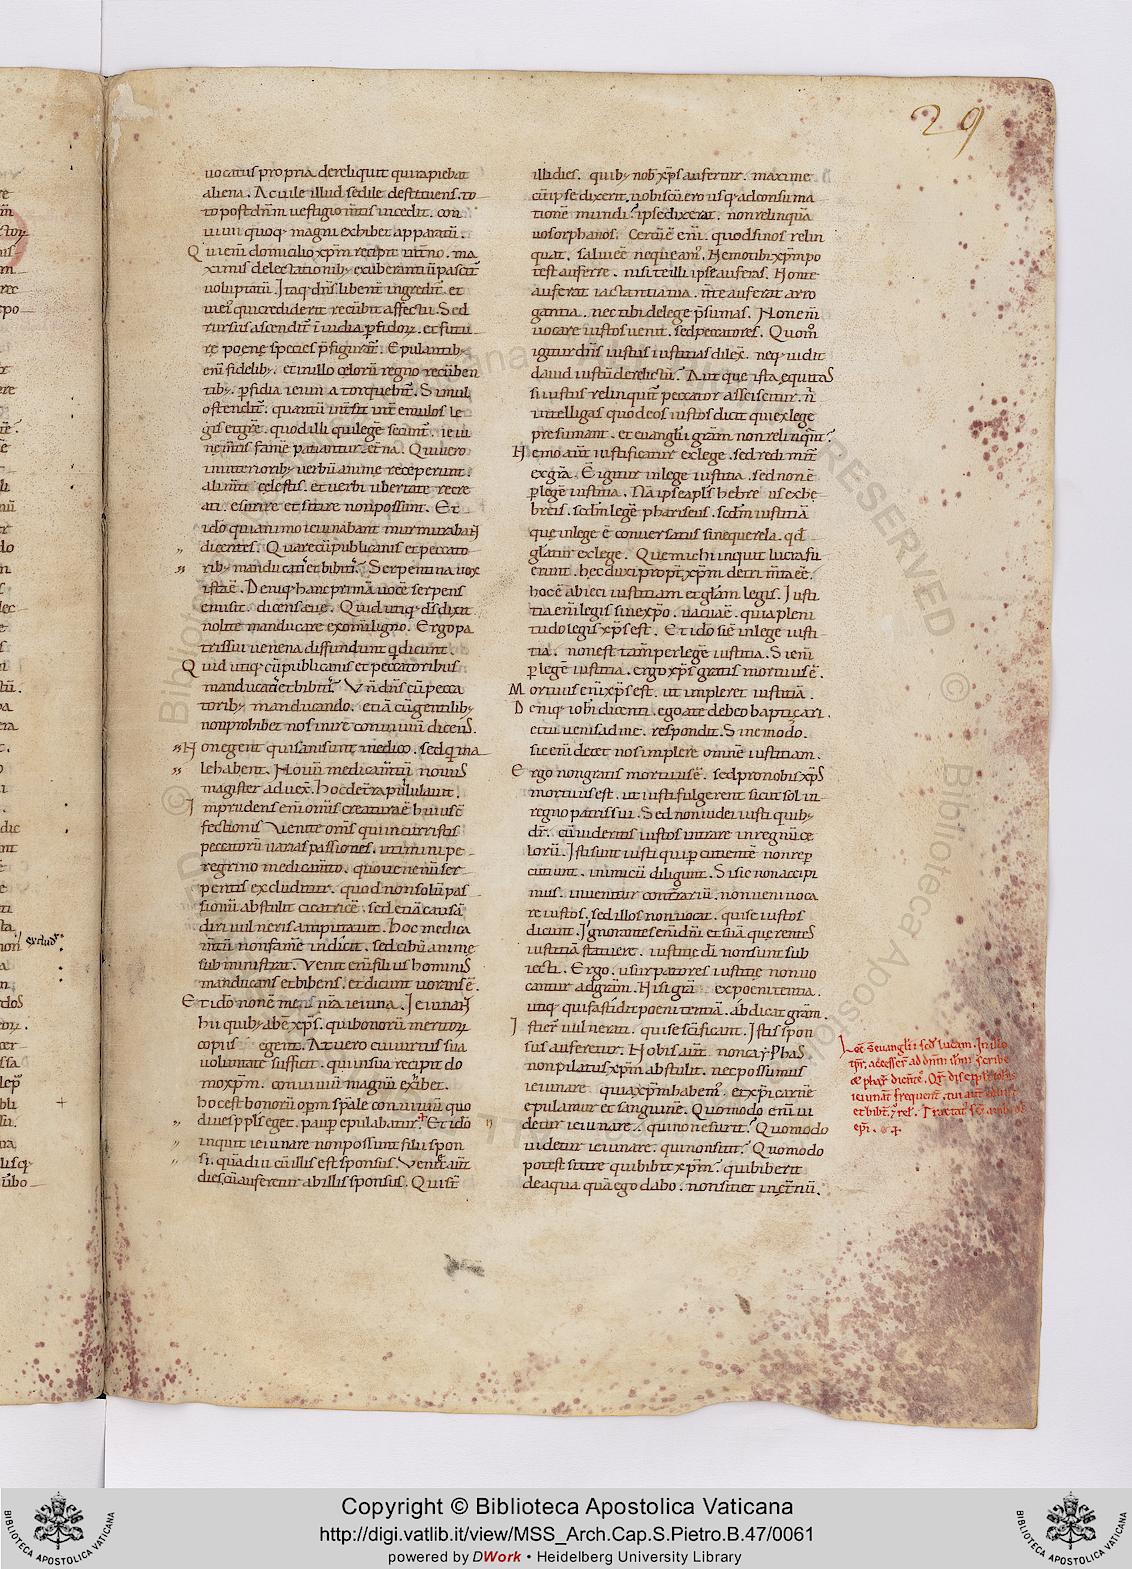 29
uocatus propria dereliquit qui rapiebat
aliena. Ac uile illud sedile destituens. to
to post dn̄m uestigio m̄tis incedit. con
uiuii quoq; magni exhibet apparatū.
Qui enī domicilio xp̄m recipit int̄no. ma
ximis delectationib; exuberantiū pascit̄
uoluptatū. Itaq; dn̄s libent̄ ingredit̄. et
in ei qui crediderit recūbit affectu. Sed
rursus ascendit̄ inuidia ꝑfidoꝝ. et futu
rę poenę species p̄figurat̄. Epulantib;
enī fidelib;. et in illo cęlorū regno recūben
tib;. ꝑfidia ieiuna torquebit̄. Simul
ostendit̄. quantū int̄sit int̄ emulos le
gis et grę. quod illi qui legē secunt̄. ieiu
nę mentis famē patiantur ęt̄na. Qui uero
in interiorib; uerbū animę receperunt.
alim̄ti cęlestis. et uerbi ubertate recre
ati. esurire et sitire non possunt. Et
ido qui animo ieiunabant murmurabant
dicentes. Quare cū publicanis et peccato
rib; manducat et bibit? Serpentina uox
ista ē. Deniq; hanc primā uocē serpens
emisit. dicens euę. Quid utiq; dixit ds̄
nolite manducare ex omni ligno. Ergo pa
tris sui uenena diffundunt qui dicunt.
Quid utiq; cū publicanis et peccatoribus
manducat et bibit? Vn̄ dn̄s cū pecca
torib; manducando. etiā cū gentilib;
non prohibet nos inire conuiuiū dicens.
Non egent qui sani sunt medico. sed qui ma
le habent. Nouū medicam̄tū nouus
magister aduex̄. Hoc de tr̄a n̄ pullulauit.
Imprudens enī omnis creatura ē huius
fectionis. Venite om̄s qui incurristis
peccatorū uarias passiones. utimini pe
regrino medicam̄to. quo uenenū ser
pentis excluditur. quod non solū pas
sionū abstulit cicatricē. sed etiā causā
diri uulneris amputauit. Hoc medica
m̄tū non famē indicit. sed cibū animę
subministrat. Venit enī filius hominis
manducans et bibens. et dicunt uorans ē.
Et ido non ē mens nr̄a ieiuna. Ieiunant
hii quib; abē xp̄s. qui bonorū meritoꝝ
copiis egent. At uero cui uirtus sua
uoluntate sufficit. qui in sua recipit do
mo xp̄m. conuiuiū magnū exibet.
hoc est bonorū opm sp̄ale conuiuiū quo
diues ppls eget. pauꝑ epulabatur. Et ido
inquit ieiunare non possunt filii spon
si. quādiu cū illis est sponsus. Venient aūt
dies cū auferetur ab illis sponsus. Qui st̄
illi dies. quib; nob̄ xp̄s aufertur. maxime
cū ipse dixerit. uobiscū ero usq; ad consūma
tionē mundi? ipse dixerat. non relinquā
uos orphanos. Certū ē enī. quod si nos relin
quat. salui eē nequeam?. Nemo tibi xp̄m po
test auferre. nisi te illi ipse auferas. Non te
auferat iactantia tua. n̄ te auferat arro
gantia. nec tibi de lege p̄sumas. Non enī
uocare iustos uenit. sed peccatores. Quom̄
igitur dn̄s iustus iustitias dilex̄. neq; uidit
dauid iustū derelictū? Aut que ista ęquitas
si iustus relinquit̄ peccator asciscitur. n̄
intelligas quod eos iustos dicit qui ex lege
presumant. et euanglii gr̄am non relinqnt?
Nemo aūt iustificatur ex lege. sed redimit̄
ex gr̄a. Ē igitur in lege iustitia. sed non ē
ꝑ legē iustitia. Nā ipse apls hebreus ex he
breis. scdm legē phariseus. scdm iustitiā
que in lege ē conuersatus sine querela. qd
gl̄atur ex lege. Que michi inquit lucra fu
erunt. hęc duxi propt̄ xp̄m detrim̄ta eē.
hoc ē abieci iustitiam et glam legis. Iusti
tia enī legis sine xpo. uacua ē. quia pleni
tudo legis xp̄s est. Et ido si ē in lege iusti
tia. non est tam̄ per legē iustitia. Si enī
ꝑ legē iustitia. ergo xp̄s gratis mortuus ē.
Mortuus enī xp̄s est. ut impleret iustitiā.
Deniq; iohi dicenti. ego a te debeo baptiçari.
et tu uenis ad me. respondit. Sine modo.
sic enī decet nos implere omnē iustitiam.
Ergo non gratis mortuus ē. sed pro nobis xp̄s
mortuus est. ut iusti fulgerent sicut sol in
regno patris sui. Sed non iudei iusti quib;
dr̄. cū uideritis iustos intrare in regnū cę
lorū. Isti sunt iusti qui ꝑcutientē non reꝑ
cutiunt. inimicū diligunt. Si sic non accipi
mus. inuenitur contrariū. non ueni uoca
re iustos. sed illos non uocat. qui se iustos
dicunt. Ignorantes enī dī et suā querentes
iustitiā statuere. iustitię dī non sunt sub
iecti. Ergo. usurpatores iustitię non uo
cantur ad gr̄am. Ni si gr̄a ex poenitentia.
utiq; qui fastidit poenitentiā. abdicat gr̄am.
Isti er̄ uulnerati. qui se sc̄ificant. Istis spon
sus auferetur. Nobis aūt non cayphas
non pilatus xp̄m abstulit. nec possumus
ieiunare quia xp̄m habem?. et xp̄i carnē
epulamur et sanguinē. Quomodo enī ui
detur ieiunare. qui non esurit? Quomodo
uidetur ieiunare. qui non sitit? Quomodo
potest sitire qui bibit xp̄m? qui biberit
de aqua. quā ego dabo. non sitiet in ęt̄nū.
Lec̄ s̄ euanglii scd̄ lucam. In illo
tpr̄. accesser̄ ad dn̄m ih̄m scribe
& phar̄ dicētē. Qr̄ discipli iohis
ieiunāt frequent̄. tui aūt edunt
et bibt̄. & rel̄. Tractat̄ scī ambrosii
epi.
excludr̄
Copyright © Biblioteca Apostolica Vaticana
http://digi.vatlib.it/view/MSS_Arch.Cap.S.Pietro.B.47/0061
powered by DWork • Heidelberg University Library
BIBLIOTECA APOSTOLICA VATICANA
BIBLIOTECA APOSTOLICA VATICANA